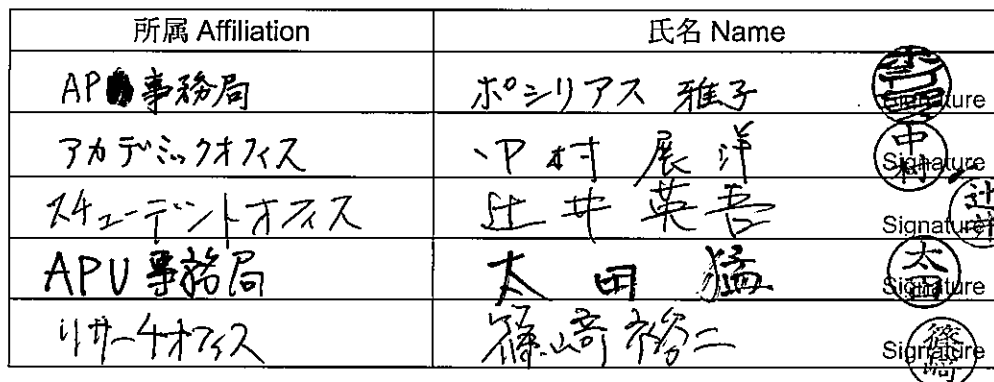 所属 Affiliation 氏名 Name
AP事務局 ポシリアス 雅子 Signature
アカデミックオフィス 中村 展洋 Signature 中村
スチューデントオフィス 辻井 英吾 Signature 辻井
APU事務局 太田 猛 Signature 太田
リサーチオフィス 篠崎 裕二 Signature 篠崎